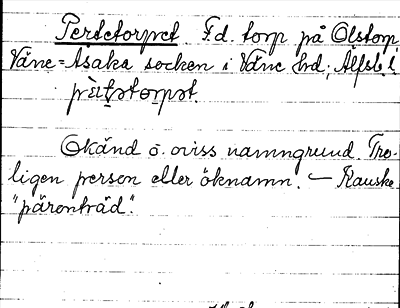 Pertetorpet. F.d. torp på Olstorp
Väne-Åsaka socken i Väne hrd, Älfsb. l.
Okänd o. oviss namngrund. Tro-
ligen person eller öknamn. — Kanske
"päronträd".